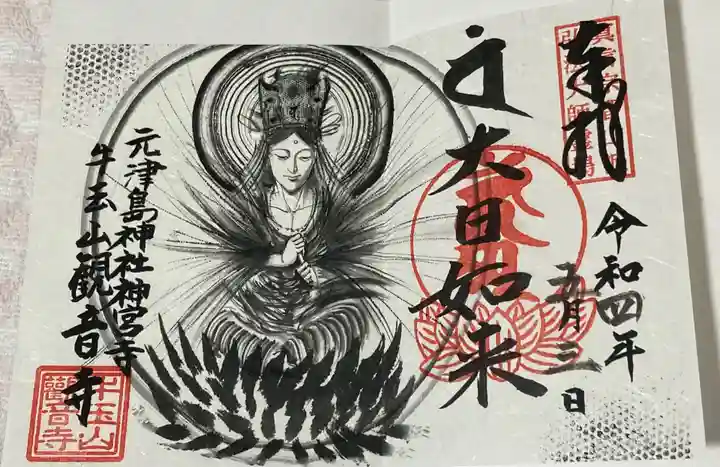 奉拝
令和四年
五月三日
大日如来
元津島神社神宮寺
牛玉山観音寺
牛玉山
觀音寺